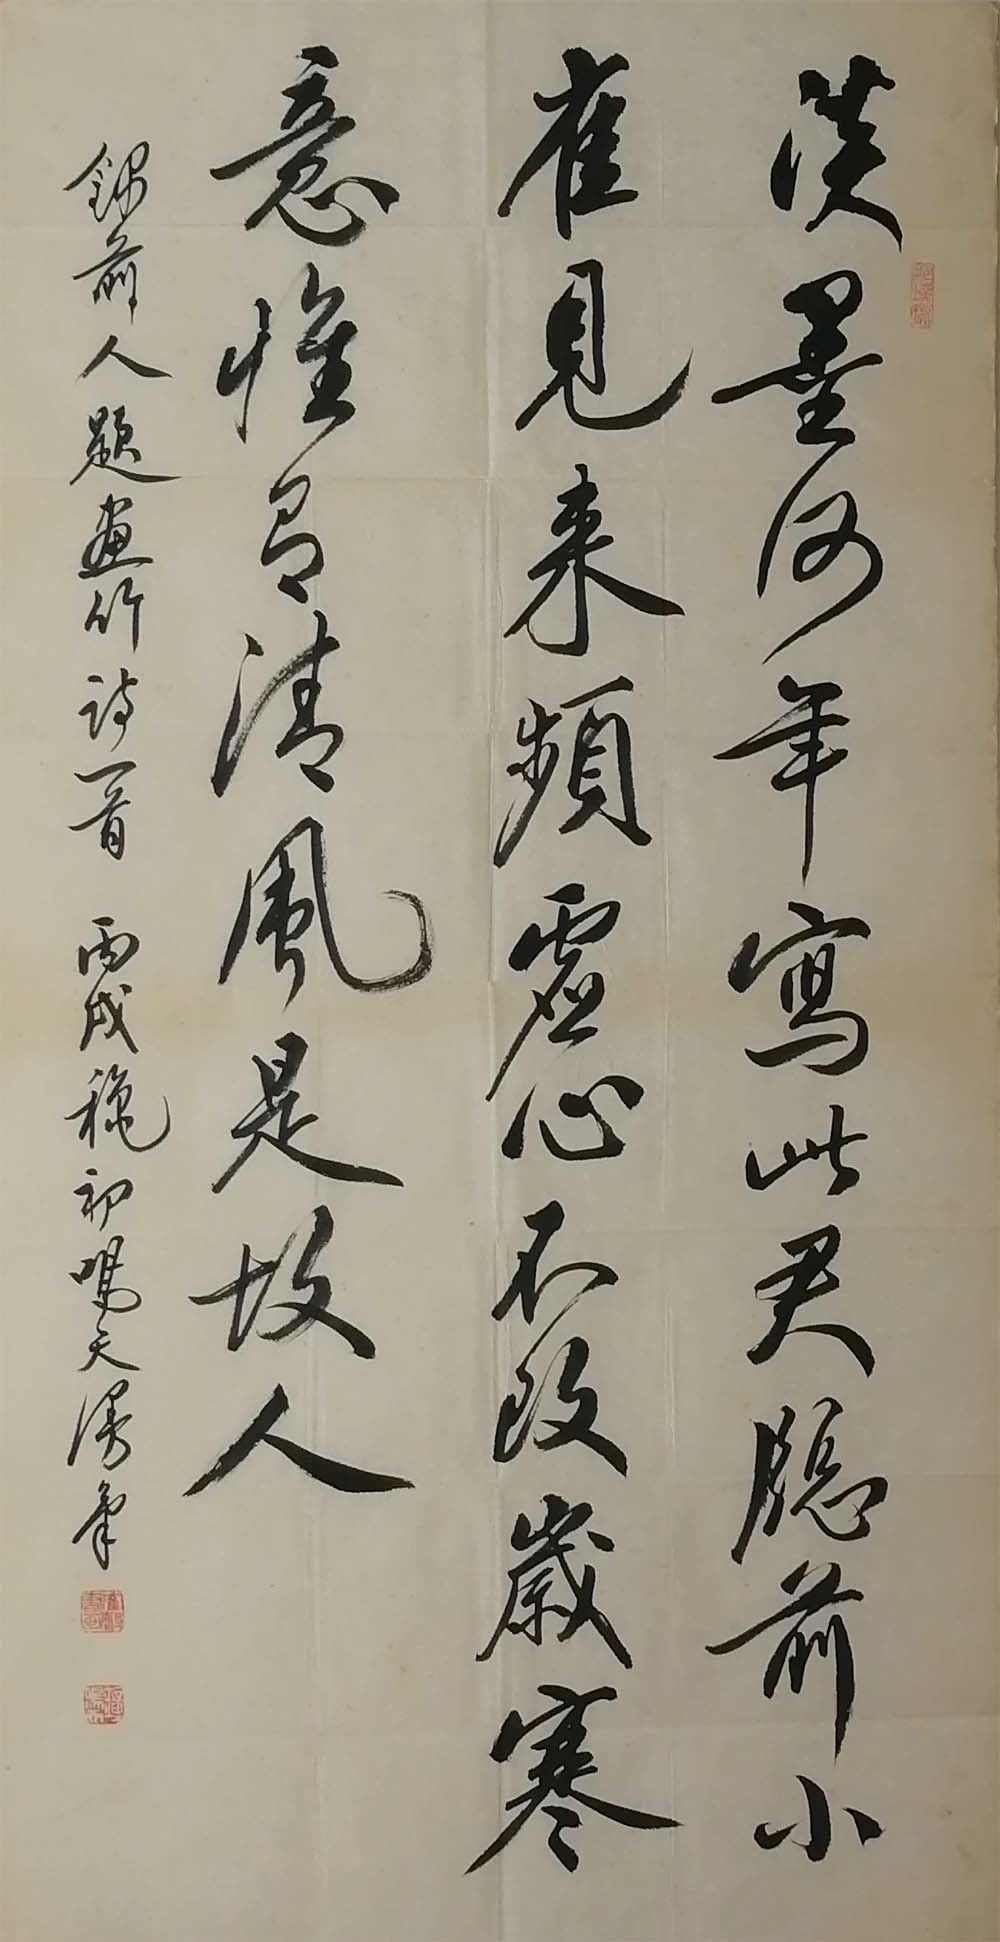 淡墨何年寫此君牕前小
雀見来頻虛心不改歲寒
意惟有清風是故人
錄前人題畫竹詩一首 丙戌穐初鳴天漫筆